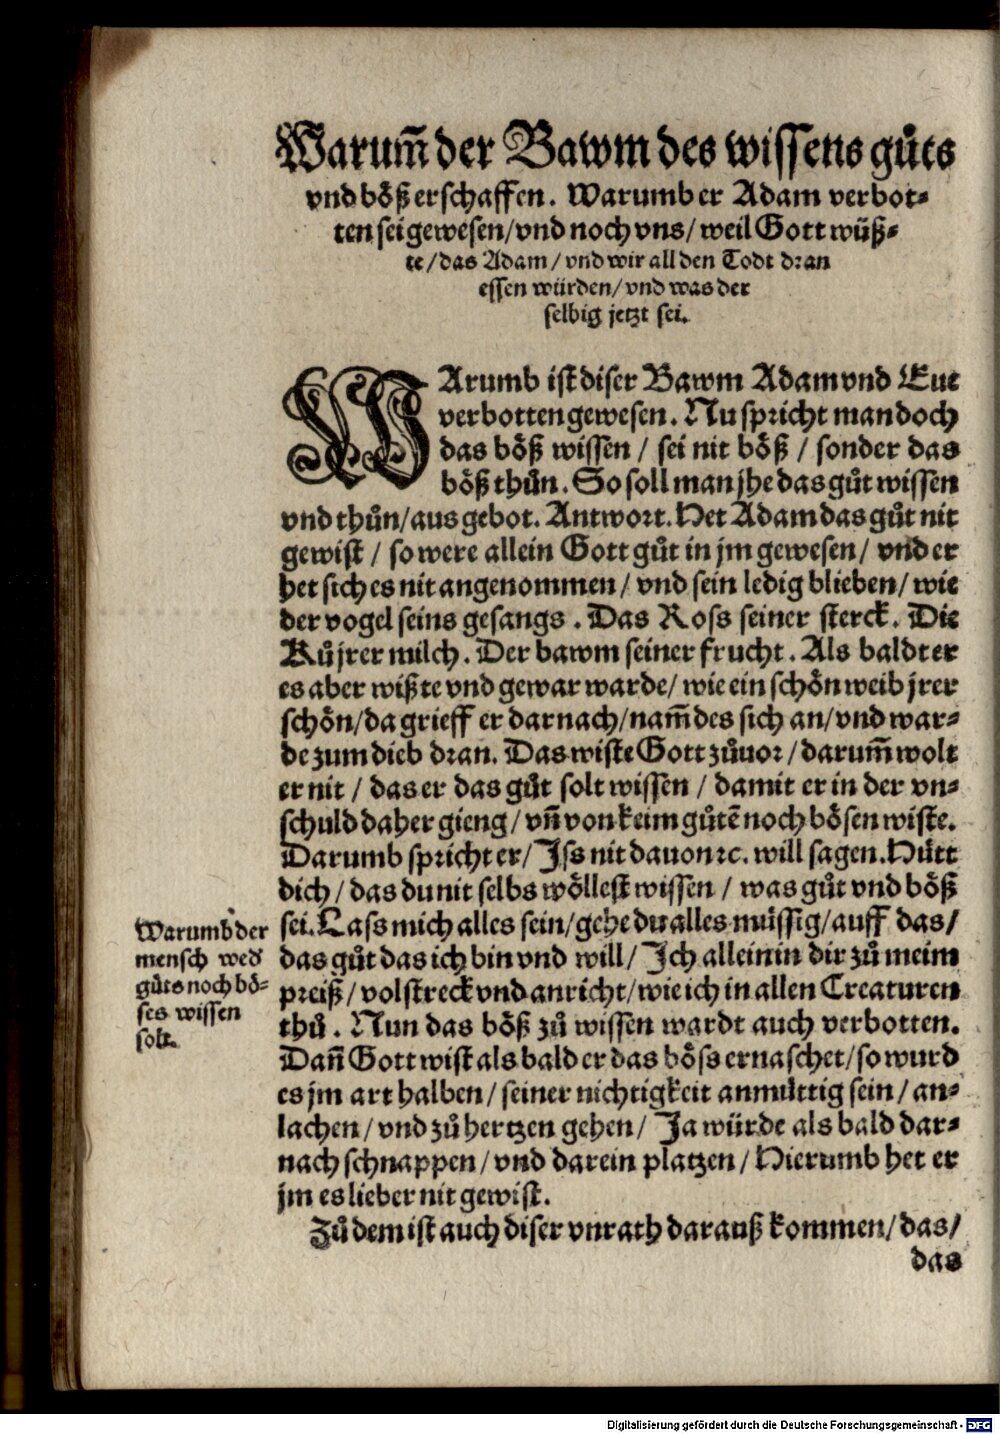 Warum̃ der Bawm des wissens gůts
vnd bo̊ß erschaffen. Warumb er Adam verbot⸗
ten sei gewesen/vnd noch vns/weil Gott wüß⸗
te/das Adam/vnd wir all den Todt dran
essen würden/vnd was der
selbig jetzt sei.
WArumb ist diser Bawm Adam vnd Eue
verbotten gewesen. Nu spricht man doch
das böß wissen / sei nit böß / sonder das
böß thůn. So soll man jhe das gůt wissen
vnd thůn/aus gebot. Antwort. Het Adam das gůt nit
gewist / so were allein Gott gůt in jm gewesen / vnd er
het sich es nit angenommen / vnd sein ledig blieben / wie
der vogel seins gesangs . Das Ross seiner sterck. Die
Ků jrer milch. Der bawm seiner frucht. Als baldt er
es aber wißte vnd gewar warde/ wie ein schön weib jrer
schön/da grieff er darnach/nam̃ des sich an/vnd war⸗
de zum dieb dran. Das wiste Gott zůuor / darum̃ wolt
er nit / das er das gůt solt wissen / damit er in der vn⸗
schuld daher gieng / vñ von keim gůtẽ noch bösen wiste.
Darumb spricht er/ Iss nit dauon ꝛc. will sagen. Hütt
dich / das du nit selbs wöllest wissen / was gůt vnd böß
sei. Lass mich alles sein/gehe du alles müssig/auff das/
Warumb der
mensch wed'
gůts noch bö⸗
ses wissen
solt.
das gůt das ich bin vnd will/ Ich allein in dir zů meim
preiß/ volstreck vnd anricht/wie ich in allen Creaturen
thů . Nun das böß zů wissen wardt auch verbotten.
Dañ Gott wist als bald er das böss ernaschet/so wurd
es jm art halben / seiner nichtigkeit anmüttig sein / an⸗
lachen / vnd zů hertzen gehen/ Ja würde als bald dar⸗
nach schnappen / vnd darein platzen / Hierumb het er
jm es lieber nit gewist.
Zů dem ist auch diser vnrath darauß kommen/ das/
das
Digitalisierung gefördert durch die Deutsche Forschungsgemeinschaft - DFG